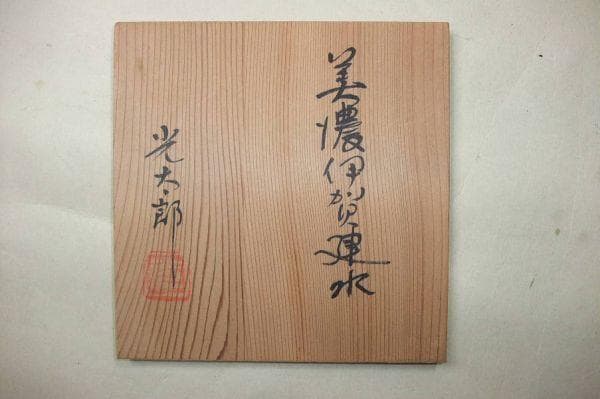 美濃伊賀建水
光太郎